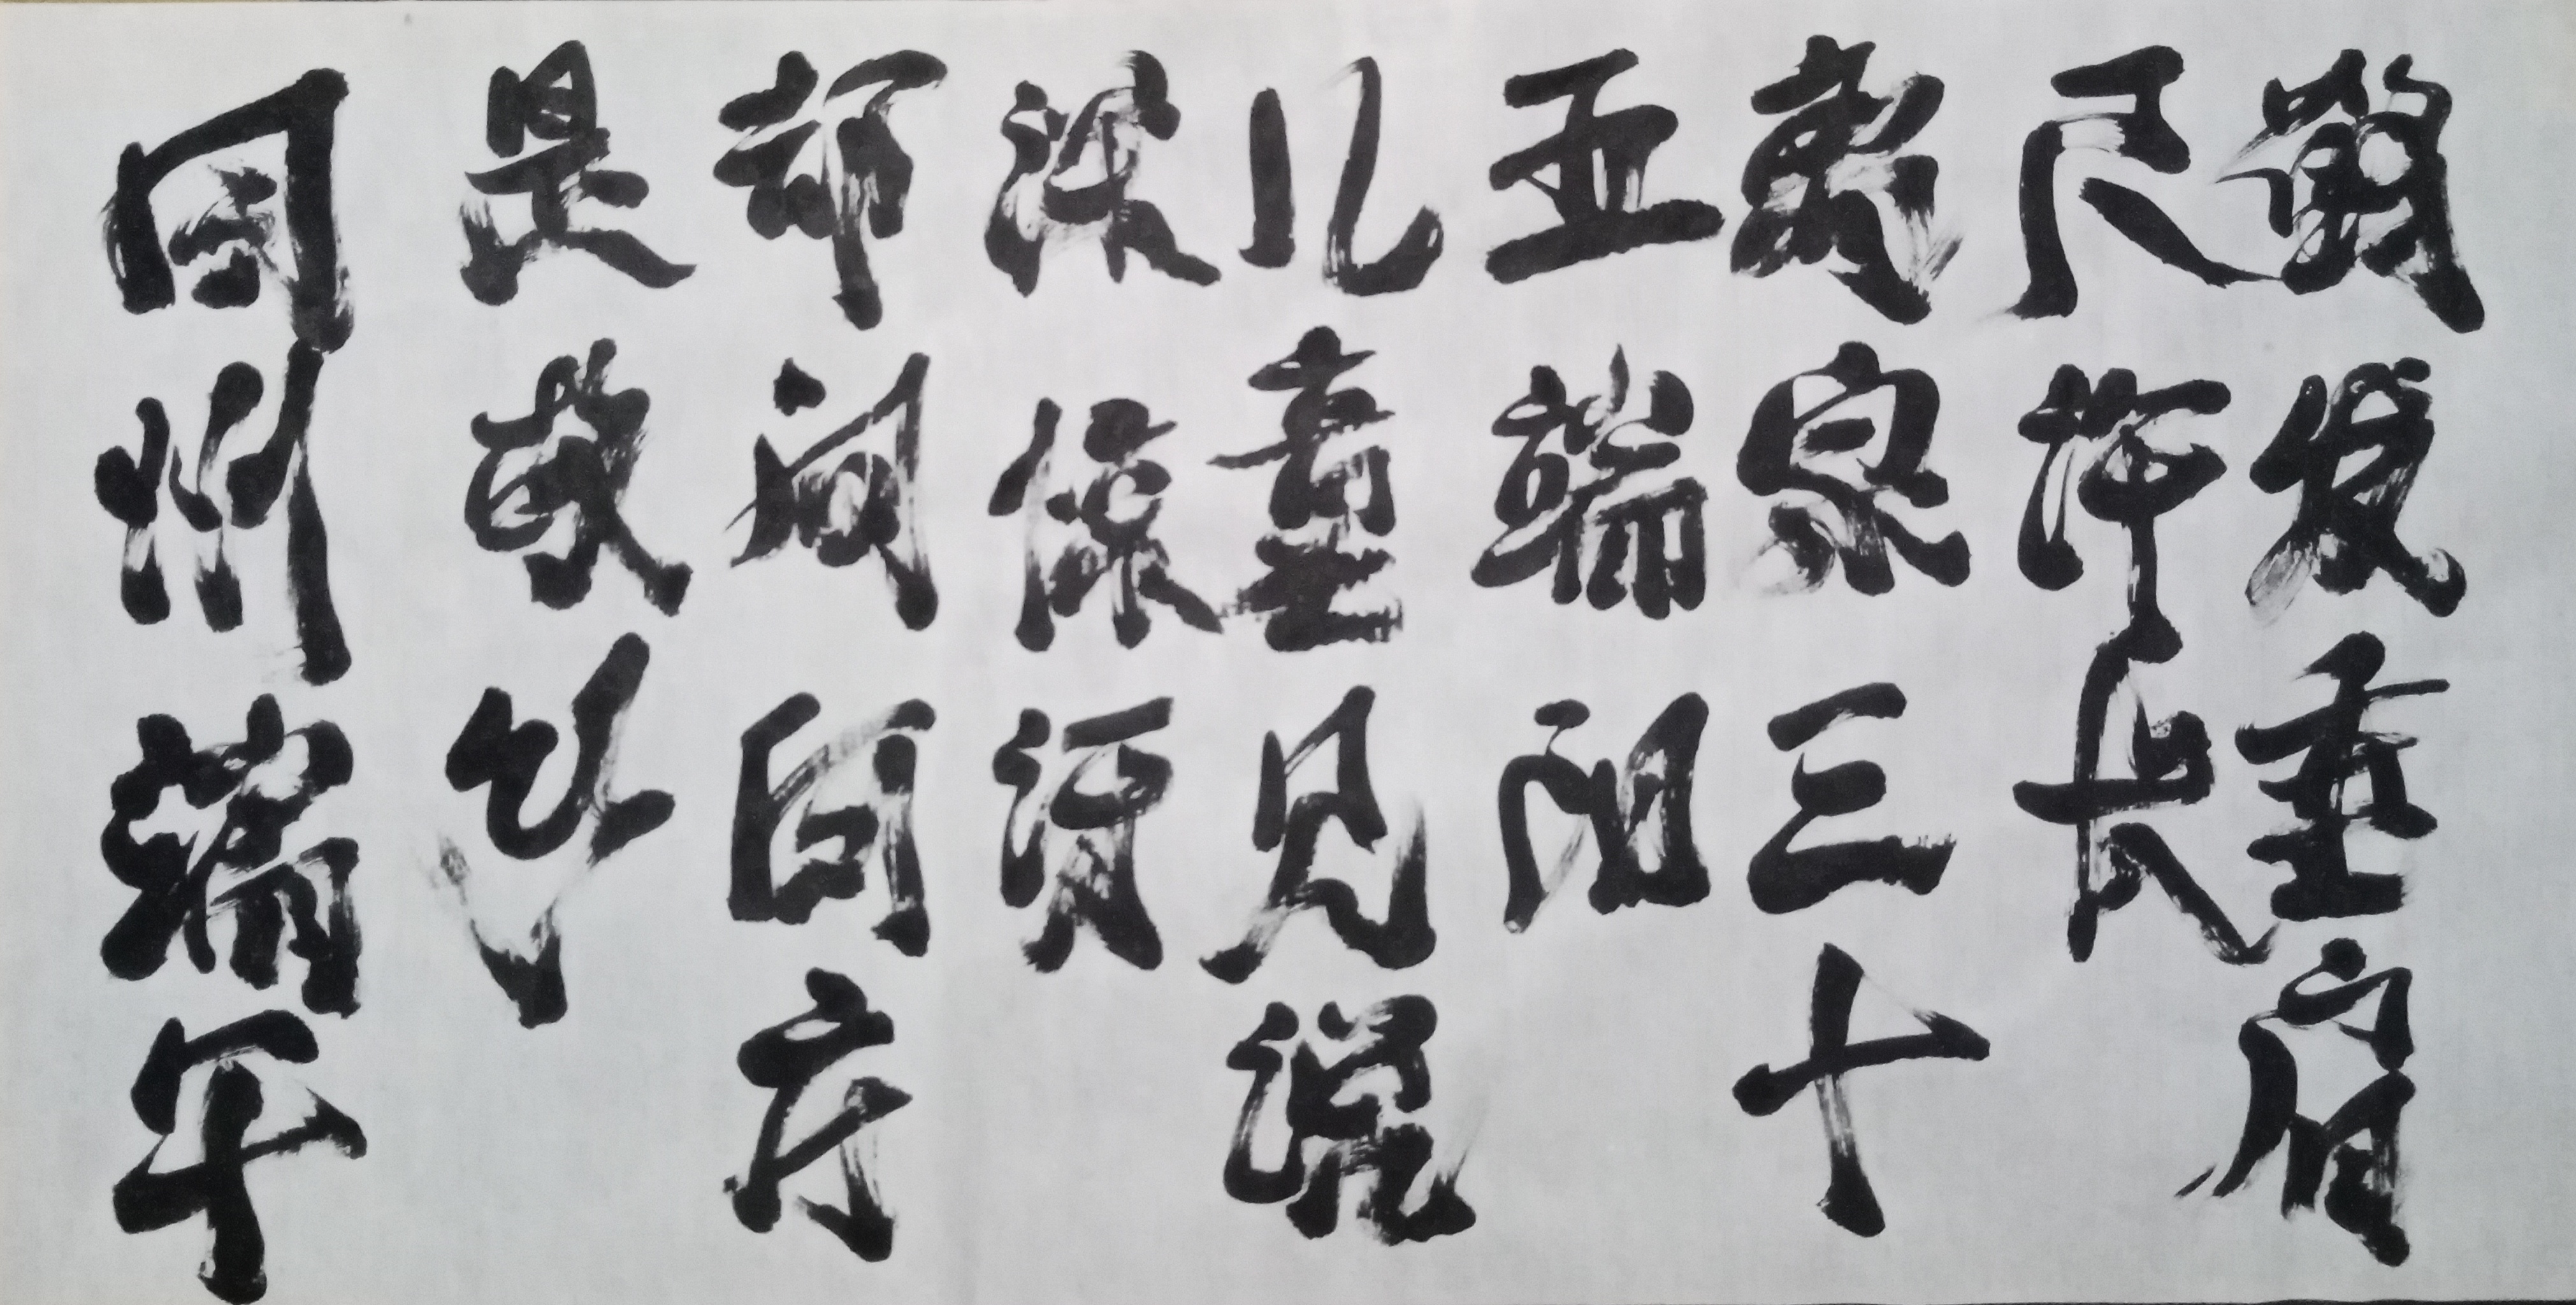 鹤发垂肩
尺许长
离家三十
五端阳
儿童见说
深惊讶
却问何方
是故乡
同州端午